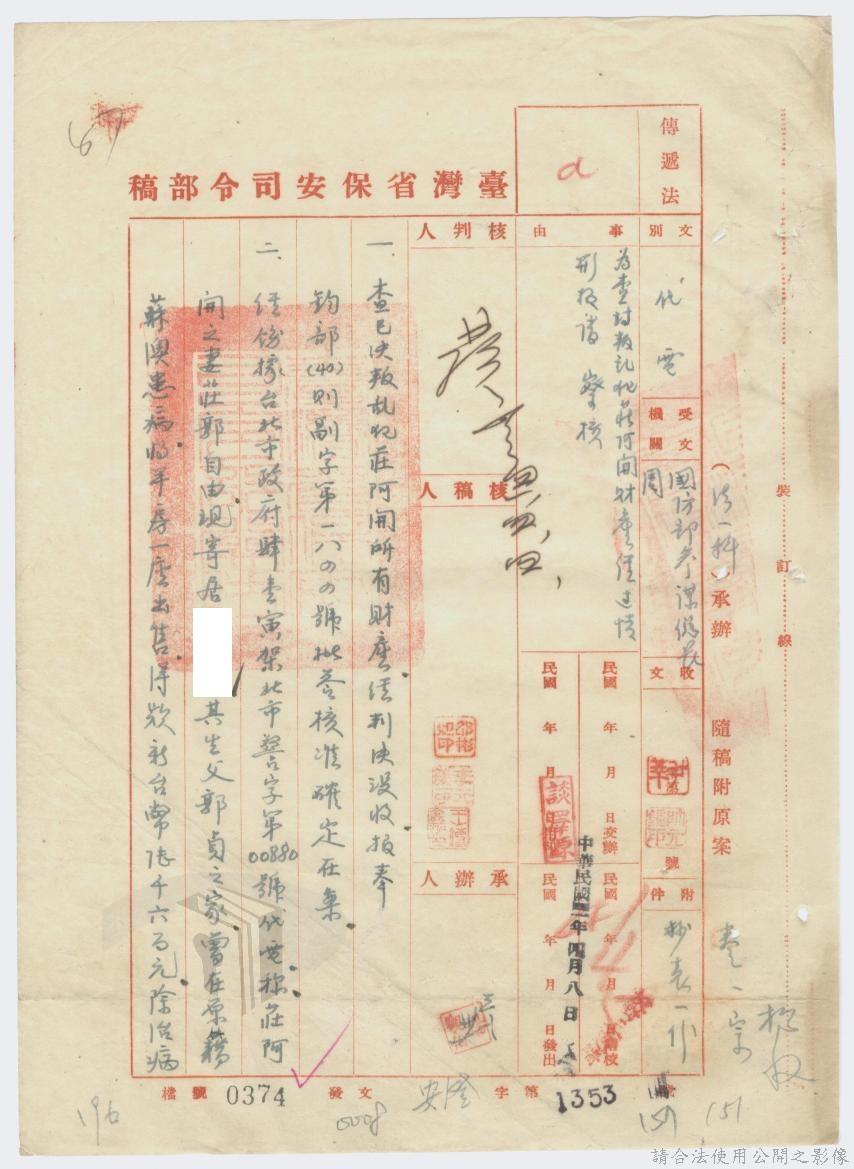 67
傳遞法
臺灣省保安司令部稿
文別
代電
事由
為查封叛亂犯莊阿開財產經過情
形報請 鑒核
受文機關
國防部參謀總長周
(法一科)承辦
隨稿附原案
卷一宗
裝訂線
核判人
核稿人
承辦人
收文
號
附件
抄表一份
民國 年 月 日交辦
民國 年 月 日
民國 年 月 日繕校
民國 年 月 日發出
談
中華民國
年四月八日
一 查已決叛亂犯莊阿開所有財產經判決沒收報奉
鈞部(40)則副字第一八〇〇號批答核准確定在案
二 經飭據台北市政府肆壹寅架北市警字第00880號代電稱莊阿
開之妻莊郭自由現寄居
其生父郭貞之家曾在原籍
蘇澳患病將平房一座出售得款新台幣陸千六百元除治病
檔號 0374
發文
0008
安澄
字第
1353
號
196
151
151
請合法使用公開之影像